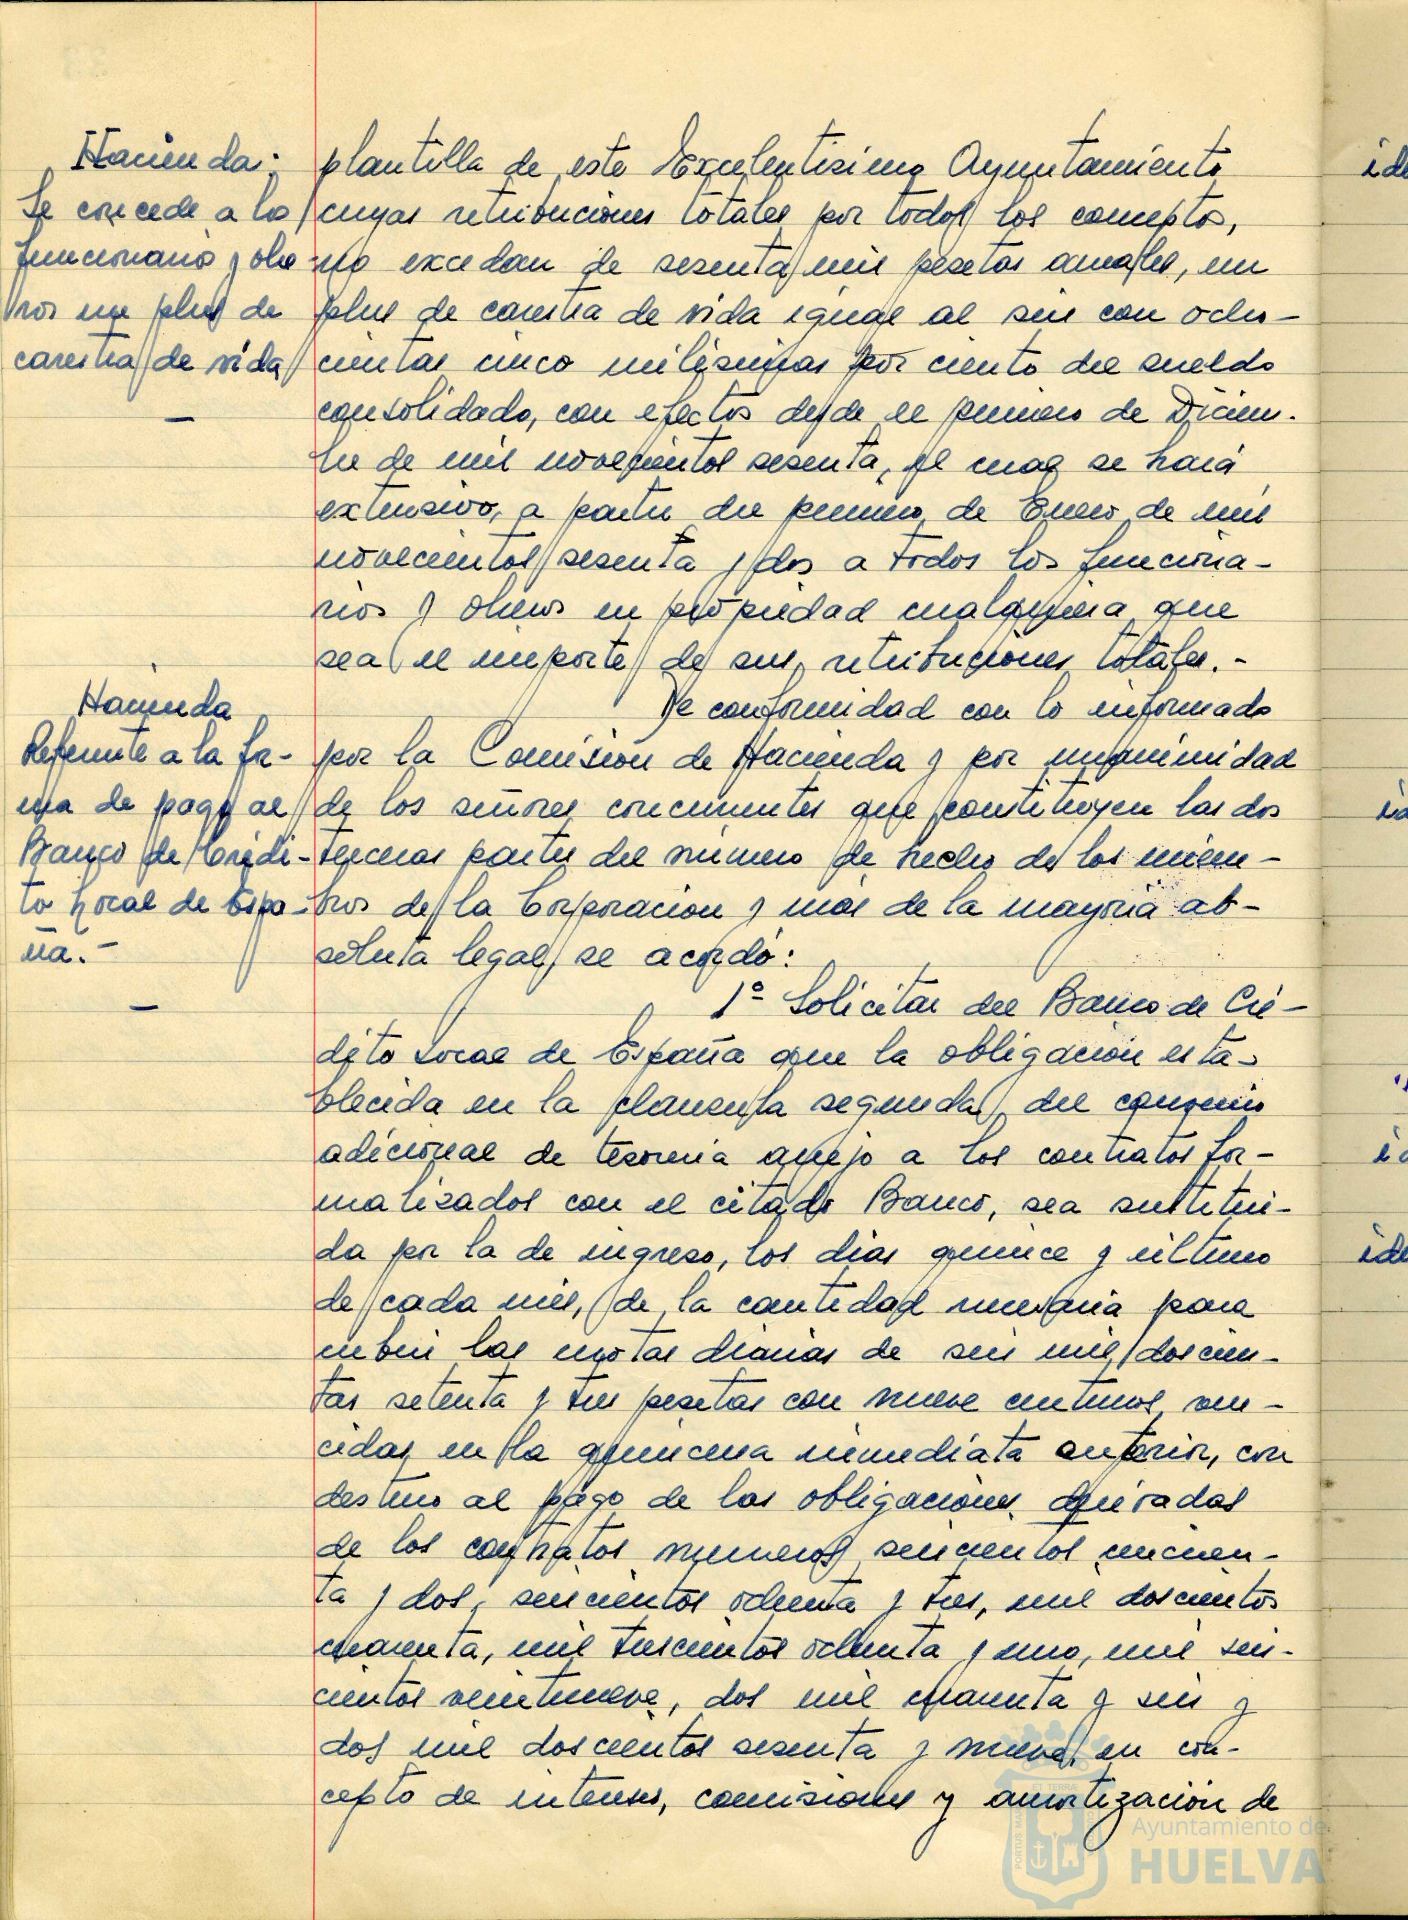 Hacienda:
Se concede a los
funcionarios y obre-
ros un plus de
carestía de vida
—
Hacienda
Referente a la for-
ma de pago al
Banco de Crédi-
to Local de Espa-
ña.-
—
plantilla de este Excelentísimo Ayuntamiento
cuyas retribuciones totales por todos los conceptos,
no excedan de sesenta mil pesetas anuales, un
plus de carestía de vida igual al seis con ocho-
cientas cinco milésimas por ciento del sueldo
consolidado, con efectos desde el primero de Diciem-
bre de mil novecientos sesenta, el cual se hará
extensivo, a partir del primero de Enero de mil
novecientos sesenta y dos a todos los funciona-
rios y obreros en propiedad cualquiera que
sea el importe de sus retribuciones totales.-
De conformidad con lo informado
por la Comisión de Hacienda y por unanimidad
de los señores concurrentes que constituyen las dos
terceras partes del número de hecho de los miem-
bros de la Corporación y más de la mayoría ab-
soluta legal, se acordó:
1º Solicitar del Banco de Cré-
dito Local de España que la obligación esta-
blecida en la cláusula segunda del convenio
adicional de tesorería anejo a los contratos for-
malizados con el citado Banco, sea sustitui-
da por la de ingreso, los días quince y último
de cada mes, de la cantidad necesaria para
cubrir las cuotas diarias de seis mil doscien-
tas setenta y tres pesetas con nueve céntimos, ven-
cidas en la quincena inmediata anterior, con
destino al pago de las obligaciones derivadas
de los contratos números seiscientos cincuen-
ta y dos, seiscientos ochenta y tres, mil doscientos
cuarenta, mil trescientos ochenta y uno, mil seis-
cientos veintinueve, dos mil cuarenta y seis y
dos mil doscientos sesenta y nueve, en con-
cepto de intereses, comisiones y amortización de
Ayuntamiento de
HUELVA